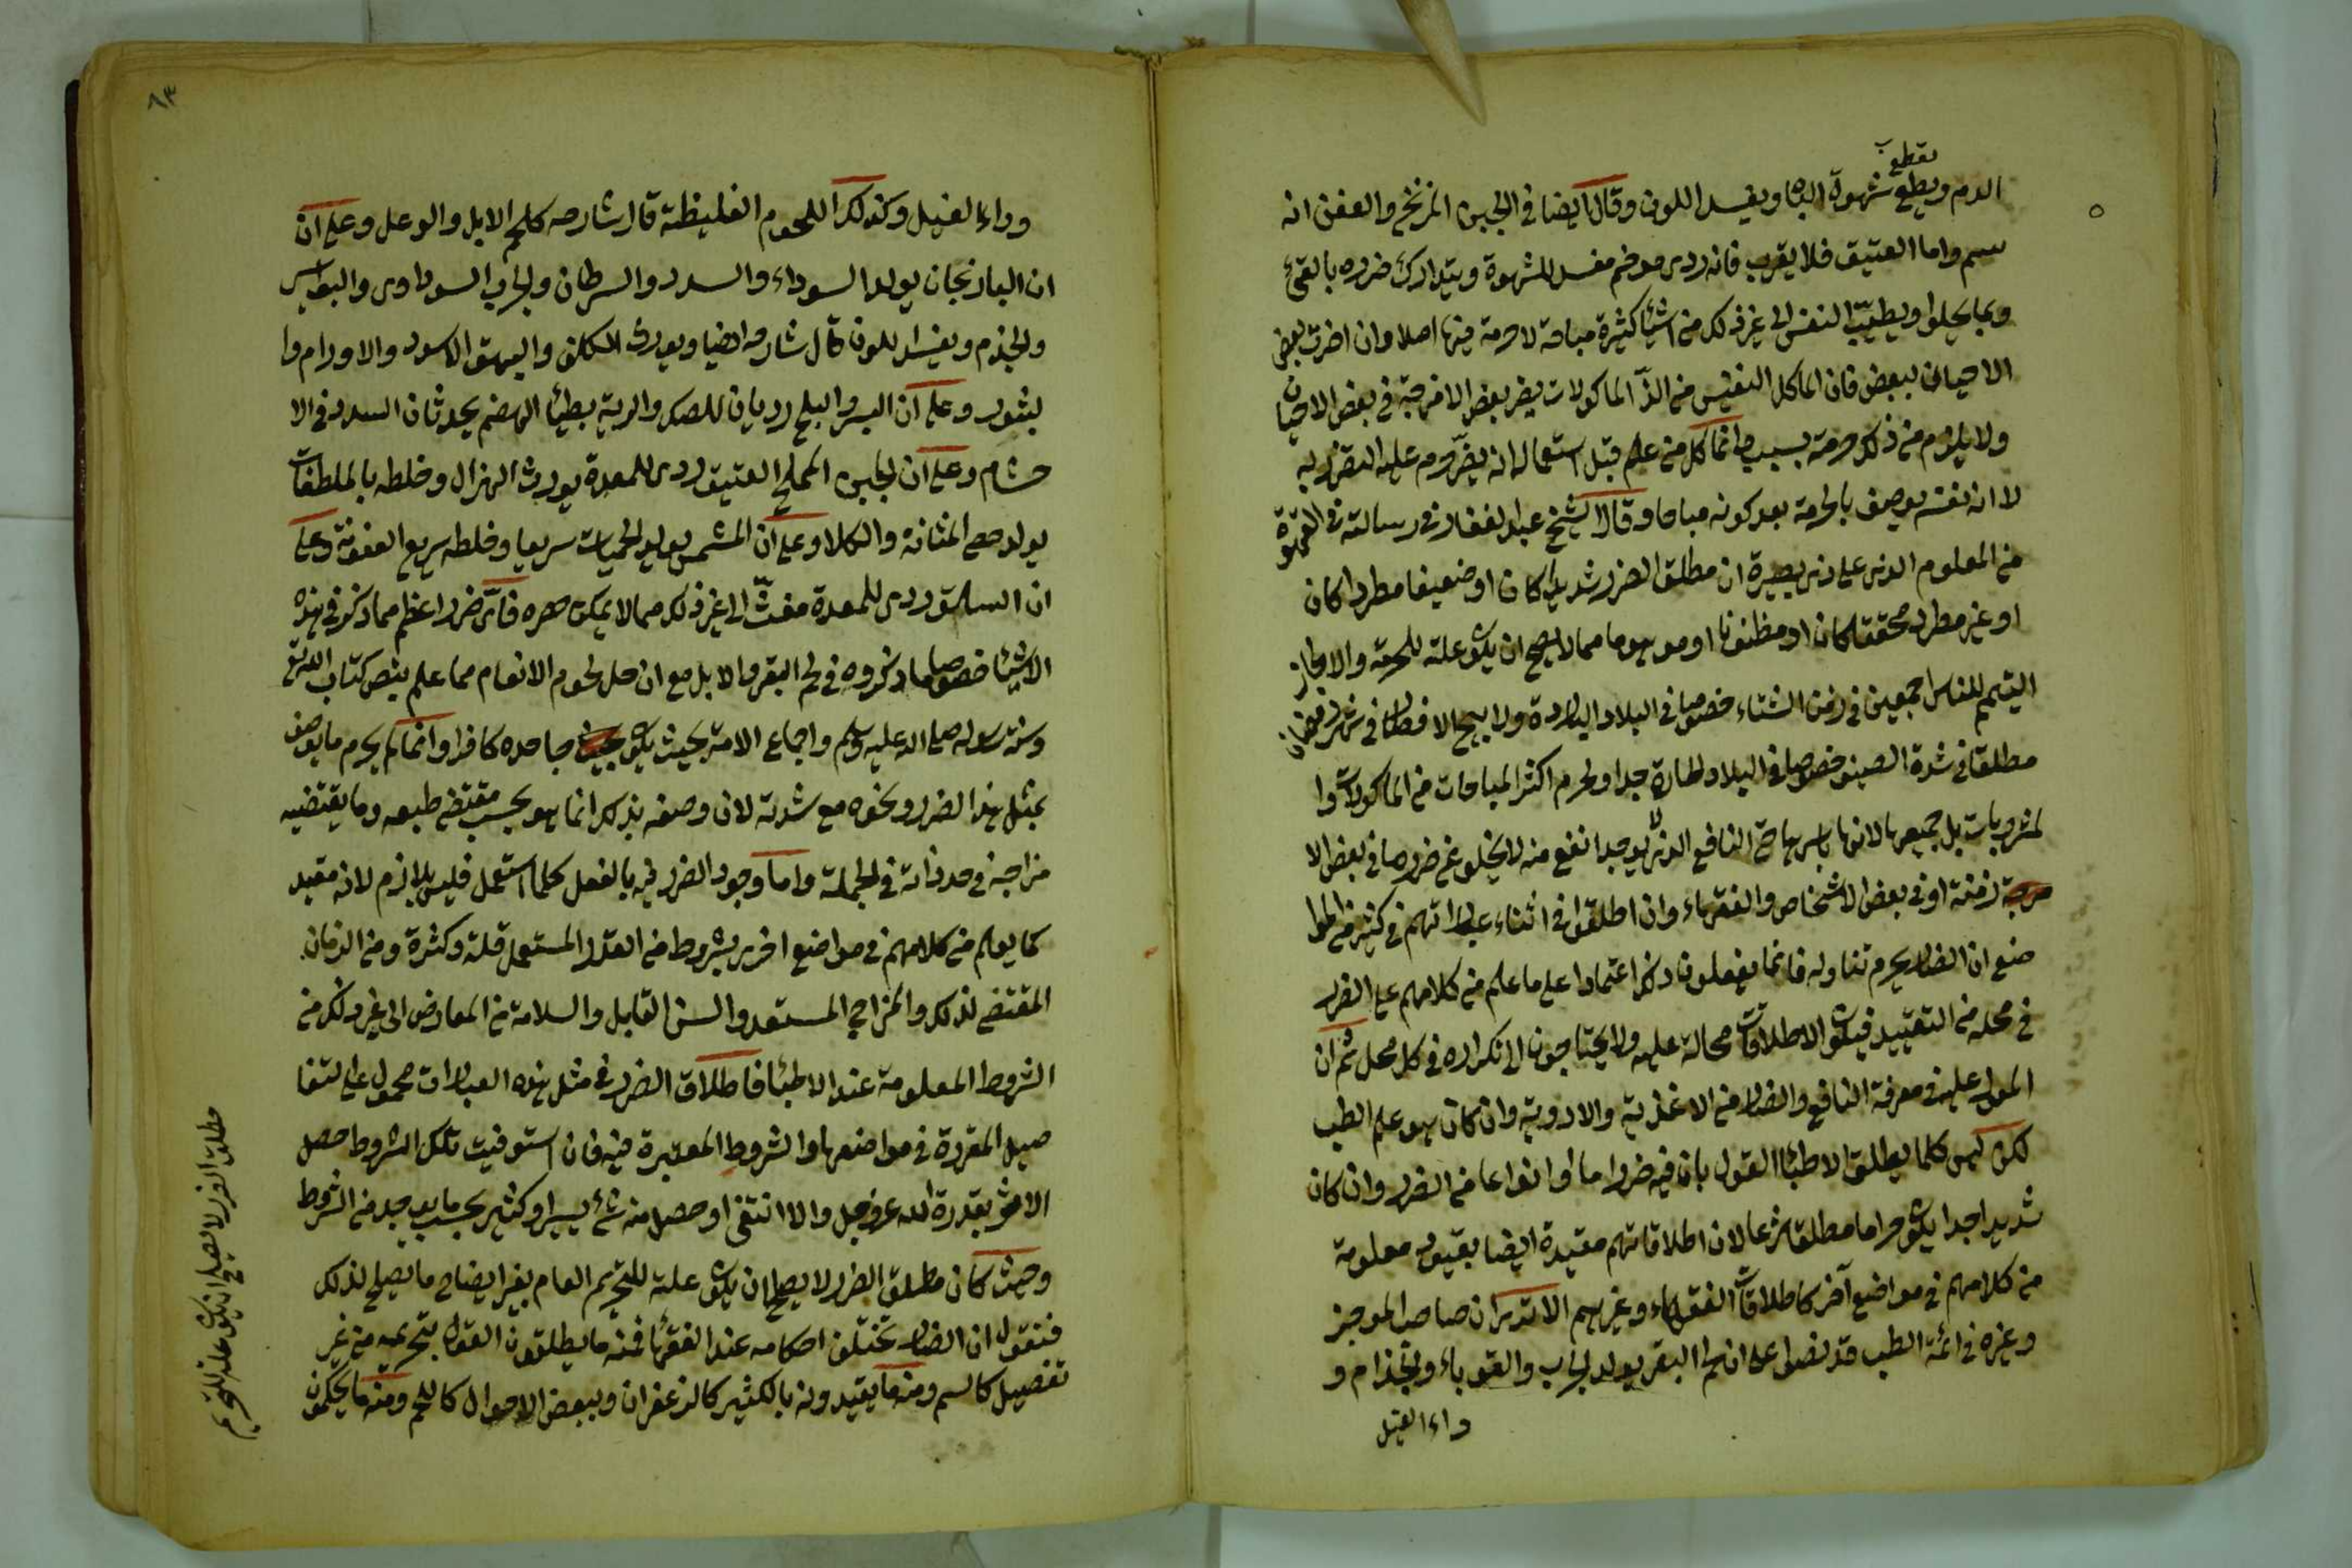 الدم ويقطع شهوة الباه ويفسد اللون وقال ايضا في الجبن المزنخر والعفن انه
سم واما العتيق فلا يقرب فانه ردى موخم مفسد للشهوة ويتدارك ضرره بالقئ
وبما يحلوا ويطيب النفس الى غير ذلك من اشيآ كثيرة مباحة لا حرمة فيها اصلا وان اضرت بعض
الاحيان لبعض فان المآكل النفيس من الذ الماكولات يضر بعض الامزجة في بعض الاحيان
ولا يلزم من ذلك حرمة بسببه وانما كل من علم قبل استعماله انه يضر حرم عليه التضرر به
لا انه نفسه يوصف بالحرمة بعد كونه مباحا وقال الشيخ عبد الغفار في رسالته في القهوة
من المعلوم الذى على ذى بصيرة ان مطلق الضرر شديدا كان او ضعيفا مطردا كان
او غير مطرد محققا كان او مظنونا او موهوما مما لا يصح ان يكون علة للحرمة والا لجاز
التيمم للناس اجمعين في زمن الشتاء خصوصا في البلاد الباردة ولا بيح الافطار في شهر رمضان
مطلقا في شدة الصيف خصوصا في البلاد الحارة جدا ولحرم اكثر المباحات من الماكولات وا
لمشروبات بل جميعها لانها باسرها حتى النافع الذى لا يوجد انفع منه لا يخلو عن ضرر ما في بعض الا
زمنة او في بعض الاشخاص والفقهاء وان اطلقوا في اثناء عباراتهم في كثير من الموا
ضع ان الضار يحرم تناوله فانما يفعلون ذلك اعتمادا على ما علم من كلامهم على الضرر
في محله من التقييد فيكون الاطلاقات محالة عليه ولا يحتاجون الى تكراره في كل محل ثم ان
المعول عليه في معرفة النافع والضار من الاغذية والادوية وان كان هو علم الطب
لكن ليس كلما يطلق الاطبآ القول بان فيه ضررا ما او انواعا من الضرر وان كان
شديدا جدا يكون حراما مطلقا شرعا لان اطلاقاتهم مقيدة ايضا بقيود معلومة
من كلامهم في مواضع آخر كاطلاقات الفقهاء وغيرهم الا ترى ان صاحب الموجز
وغيره من ائمة الطب قد نصوا على ان لحم البقر يولد الجرب والقوباء والجذام و
داء الفيل
٨٣
وداء الفيل وكذلك اللحوم الغليظة قال شارحه كلحم الابل والوعل وعلى ان
ان الباذنجان يولد السوداء والسدد والسرطان والجرب السوداوى والبواسير
والجذم ويفسد اللون قال شارحه ايضا ويورث الكلف والبهق الاسود والاورام وا
لبثور وعلى ان البسر والبلح رديان للصدر والرية بطيئا الهضم يحدثان السدد في الا
حشام وعلى ان الجبن المملح العتيق ردى للمعدة يورث الهزال وخلطه بالملطفات
يولد حصى المثانة والكلا وعلى ان المشمش يولد الحميات سريعا وخلطه سريع العفونة وعلى
ان السلق ردى للمعدة مغث الى غير ذلك مما لا يمكن حصره فاى ضرر اعظم مما ذكر في هذه
الاشيآ خصوصا ما ذكروه في لحم البقر والابل مع ان حل لحوم الانعام مما علم بنص كتاب الله تع
وسنة رسوله صلى الله عليه وسلم واجماع الامة بحيث يكون جاحده كافرا وانما لم يحرم ما يوصف
بمثل هذا الضرر ونحوه مع شدته لان وصفه بذلك انما هو بحسب مقتضى طبعه وما يقتضيه
مزاجه في حد ذاته في الجملة واما وجود الضرر فيه بالفعل كلما استعمل فليس بلازم لانه مقيد
كما يعلم من كلامهم في مواضع اخر بشروط من القدر المستعمل قلة وكثرة ومن الزمان
المقتضى لذلك والمزاج المستعد والسن القابل والسلامة من المعارض الى غير ذلك من
الشروط المعلومة عند الاطبآ فاطلاق الضرر في مثل هذه العبارات محمول على التفا
صيل المقررة في مواضعها والشروط المعتبرة فيه فان استوفيت تلك الشروط حصل
الاثر بقدرة الله عز وجل والا انتفى او حصل منه شئ يسير او كثير بحسب ما يوجد من الشروط
وحيث كان مطلق الضرر لا يصلح ان يكون علة للتحريم العام بغير ايضاح ما يصلح لذلك
فنقول ان الضار تختلف احكامه عند الفقهآ فمنه ما يطلقون القول بتحريمه من غير
تفصيل كالسم ومنه ما يقيدونه بالكثير كالزعفران وببعض الاحوال كاللحم ومنه ما يحكمون
مطلق الضرر لا يصلح ان يكون علة للتحريم